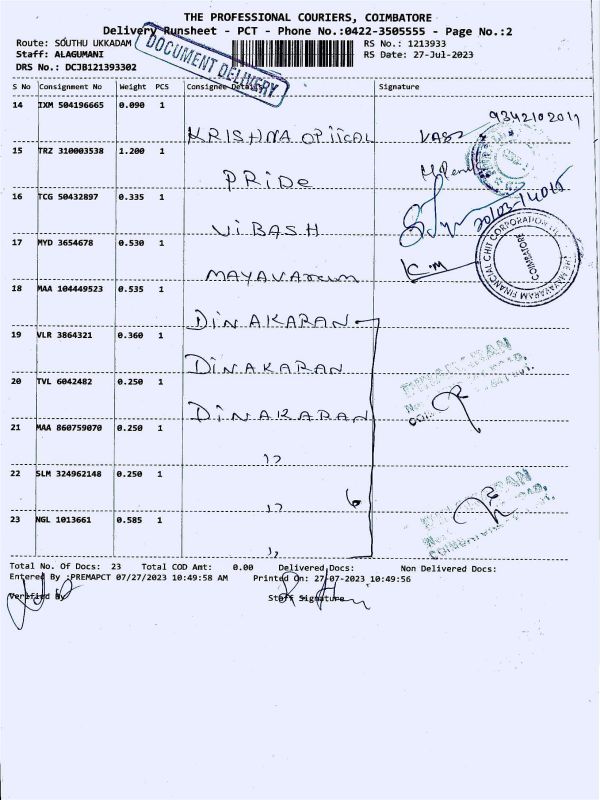 THE PROFESSIONAL COURIERS, COIMBATORE
Delivery Runsheet - PCT - Phone No.:0422-3505555 - Page No.:2
Route: SOUTHU UKKADAM RS No.: 1213933
Staff: ALAGUMANI RS Date: 27-Jul-2023
DRS No.: DCJB121393302
DOCUMENT DELIVERY
S No Consignment No Weight PCS Consignee Details Signature
14 IXM 504196665 0.090 1
KRISHNA OPTICAL 9342102011
15 TRZ 310003538 1.200 1
PRIDE
16 TCG 50432897 0.335 1
VIBASH
17 MYD 3654678 0.530 1
MAYAVARAM K.M
COIMBATORE
18 MAA 104449523 0.535 1
DINAKARAN
19 VLR 3864321 0.360 1
DINAKARAN
20 TVL 6042482 0.250 1
DINAKARAN
DINAKARAN
21 MAA 860759070 0.250 1
,,
22 SLM 324962148 0.250 1
,, 6
23 NGL 1013661 0.585 1
,,
Total No. Of Docs: 23 Total COD Amt: 0.00 Delivered Docs: Non Delivered Docs:
Entered By :PREMAPCT 07/27/2023 10:49:58 AM Printed On: 27-07-2023 10:49:56
Verified By Staff Signature